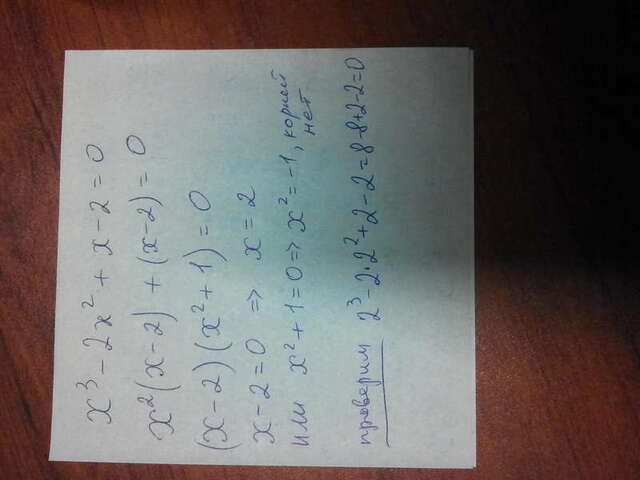 x³ - 2x² + x - 2 = 0
x²(x - 2) + (x - 2) = 0
(x - 2)(x² + 1) = 0
x - 2 = 0 => x = 2
или x² + 1 = 0 => x² = -1, корней нет
проверим 2³ - 2·2² + 2 - 2 = 8 - 8 + 2 - 2 = 0